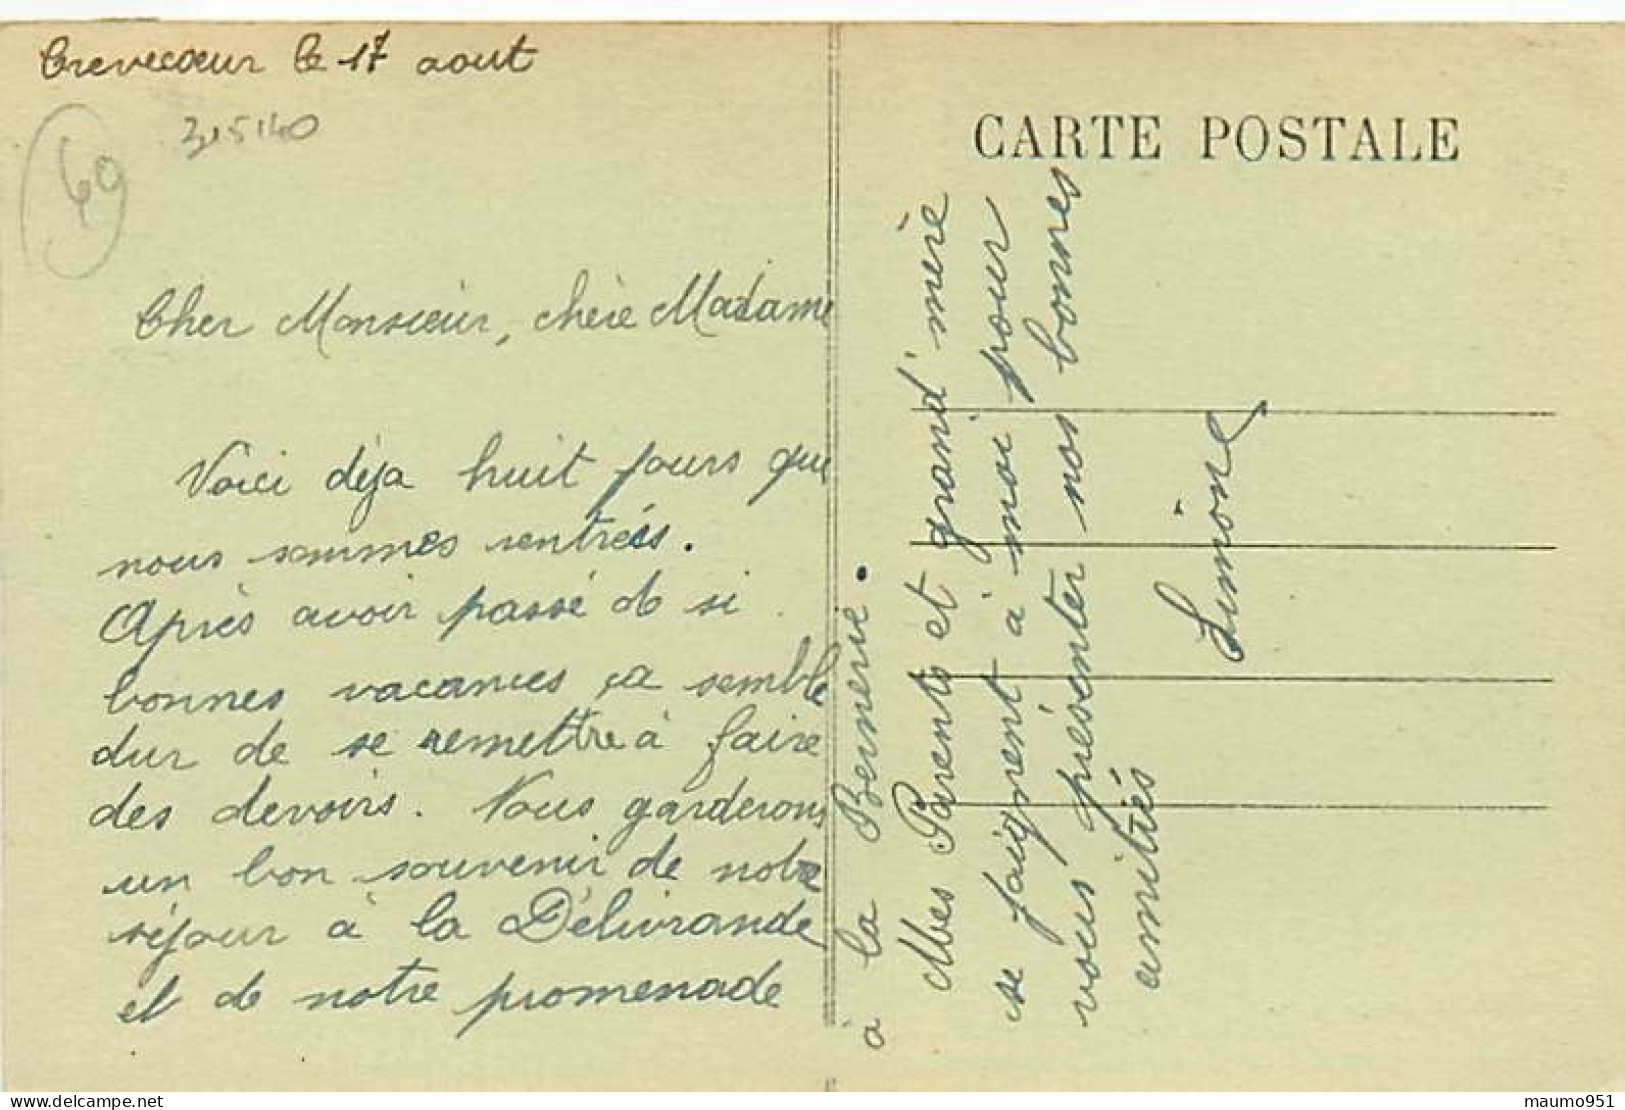 Crevecœur le 17 aout
60
315140
CARTE POSTALE
Cher Monsieur, chère Madame
Voici déja huit jours que
nous sommes rentrées.
Après avoir passé de si
bonnes vacances ça semble
dur de se remettre à faire
des devoirs. Nous garderons
un bon souvenir de notre
séjour à la Délivrande
et de notre promenade
à la Bernerie.
Mes Parents et grand'mère
se joignent à moi pour
vous présenter nos bonnes
amitiés
Simone
maumo951